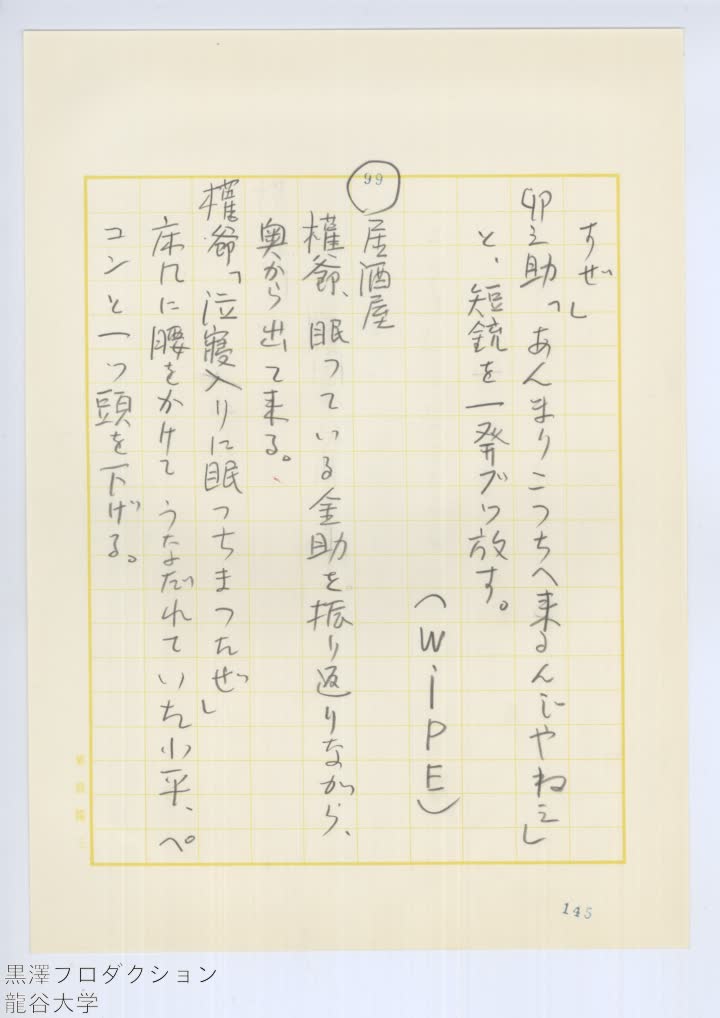 すぜ」
卯之助「あんまりこっちへ来るんじやねえ」
と、短銃を一発ブッ放す。
（WiPE）
99
居酒屋
権爺、眠っている金助を振り返りながら、
奥から出て来る。
権爺「泣寝入りに眠っちまったぜ」
床几に腰をかけてうなだれていた小平、ペ
コンと一つ頭を下げる。
145
黒澤プロダクション
龍谷大学